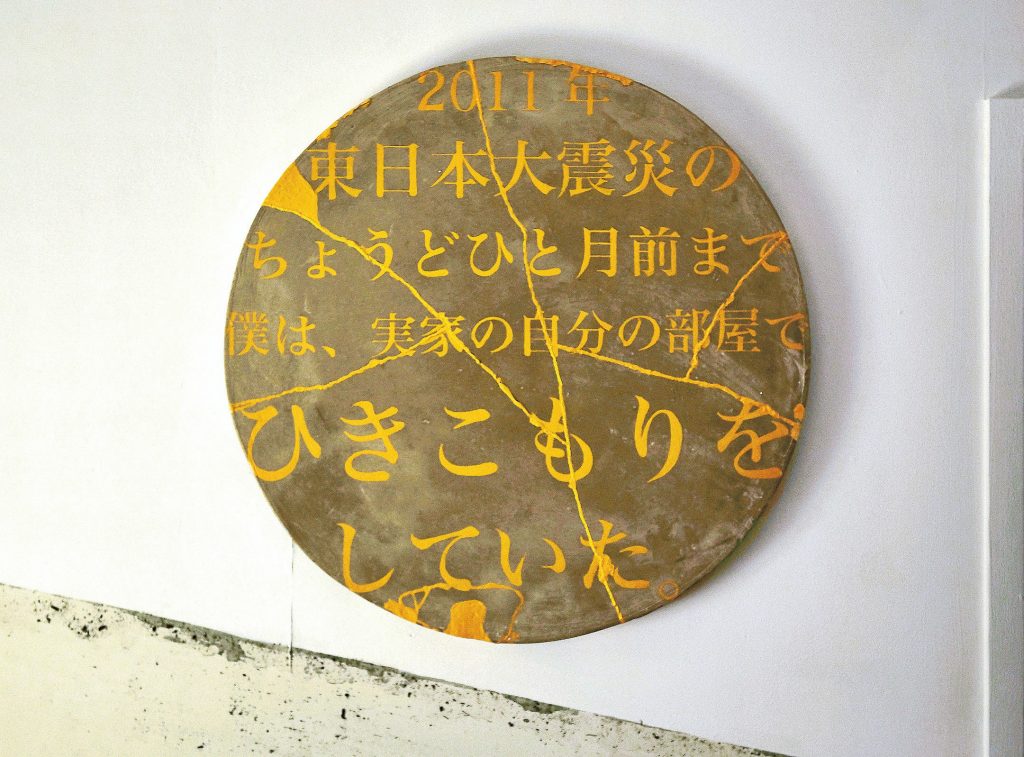 2011年
東日本大震災の
ちょうどひと月前まで
僕は、実家の自分の部屋で
ひきこもりを
していた。